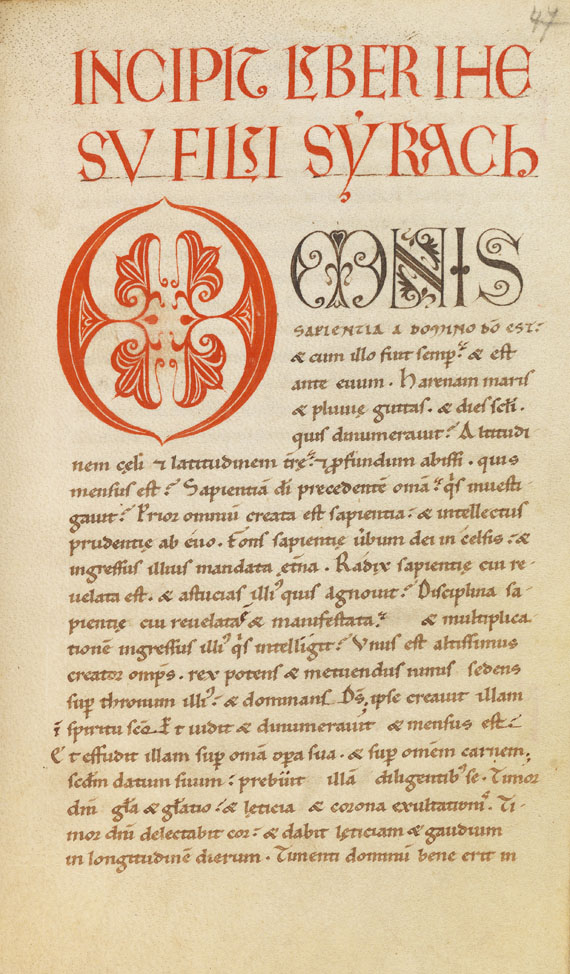 47
INCIPIT LIBER IHE
SV FILII SYRACh
OMNIS
SAPIENTIA A DOMINO DŌ EST.
& cum illo fuit semp̄. & est
ante euum. Harenam maris
& pluuię guttas. & dies sc̄li.
quis dinumerauit? Altitudi
nem cęli & latitudinem trę. & ꝓfundum abissi. quis
mensus est? Sapientiā dī precedentē omīa. q̇s inuesti
gauit? Prior omniū creata est sapientia. & intellectus
prudentię ab ęuo. Fons sapientię ūbum dei in celsis. &
ingressus illius mandata ęt̄na. Radix sapientię cui re
uelata est. & astucias illiꝰ quis agnouit? Disciplina sa
pientię cui reuelata & manifestata. & multiplica
tionē ingressus illiꝰ q̇s intelligit? Vnus est altissimus
creator omp̄s. rex potens & metuendus nimis sedens
sup̄ thronum illiꝰ. & dominans D̄s. ipse creauit illam
ī spiritu scō. Et uidit & dinumerauit & mensus est.
Et effudit illam sup̄ omīa op̄a sua. & sup̄ omēm carnem
scdm datum suum. prebuit illā diligentibꝰ se. Timor
dn̄i gl̄a & gl̄atio. & lęticia & corona exultationiſ. Ti
mor dn̄i delectabit cor. & dabit lęticiam & gaudium
in longitudinē dierum. Timenti dominū bene erit in